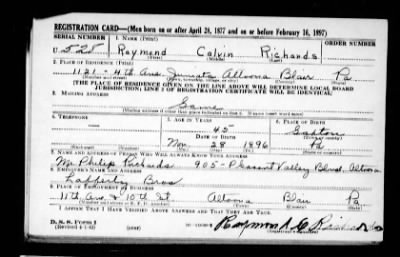 REGISTRATION CARD—(Men born on or after April 28, 1877 and on or before February 16, 1897)
SERIAL NUMBER 1. NAME (Print) ORDER NUMBER
U 528 Raymond Calvin Richards
(First) (Middle) (Last)
2. PLACE OF RESIDENCE (Print)
1121 - 4th Ave. Juniata Altoona Blair Pa
(Number and street) (Town, township, village, or city) (County) (State)
[THE PLACE OF RESIDENCE GIVEN ON THE LINE ABOVE WILL DETERMINE LOCAL BOARD
JURISDICTION; LINE 2 OF REGISTRATION CERTIFICATE WILL BE IDENTICAL]
3. MAILING ADDRESS
Same
(Mailing address if other than place indicated on line 2. If same insert word same)
4. TELEPHONE 5. AGE IN YEARS 6. PLACE OF BIRTH
45
DATE OF BIRTH
(Town or county)
Nov 28 1896 Pa
(Mo.) (Day) (Yr.) (State or country)
7. NAME AND ADDRESS OF PERSON WHO WILL ALWAYS KNOW YOUR ADDRESS
Mr Philip Richards 905 - Pleasant Valley Blvd. Altoona
8. EMPLOYER'S NAME AND ADDRESS
Lafferty Bros
9. PLACE OF EMPLOYMENT OR BUSINESS
11th Ave & 10th St. Altoona Blair Pa
(Number and street or R. F. D. number) (Town) (County) (State)
I AFFIRM THAT I HAVE VERIFIED ABOVE ANSWERS AND THAT THEY ARE TRUE.
D. S. S. Form 1
(Revised 4-1-42) (over)
Raymond C Richards